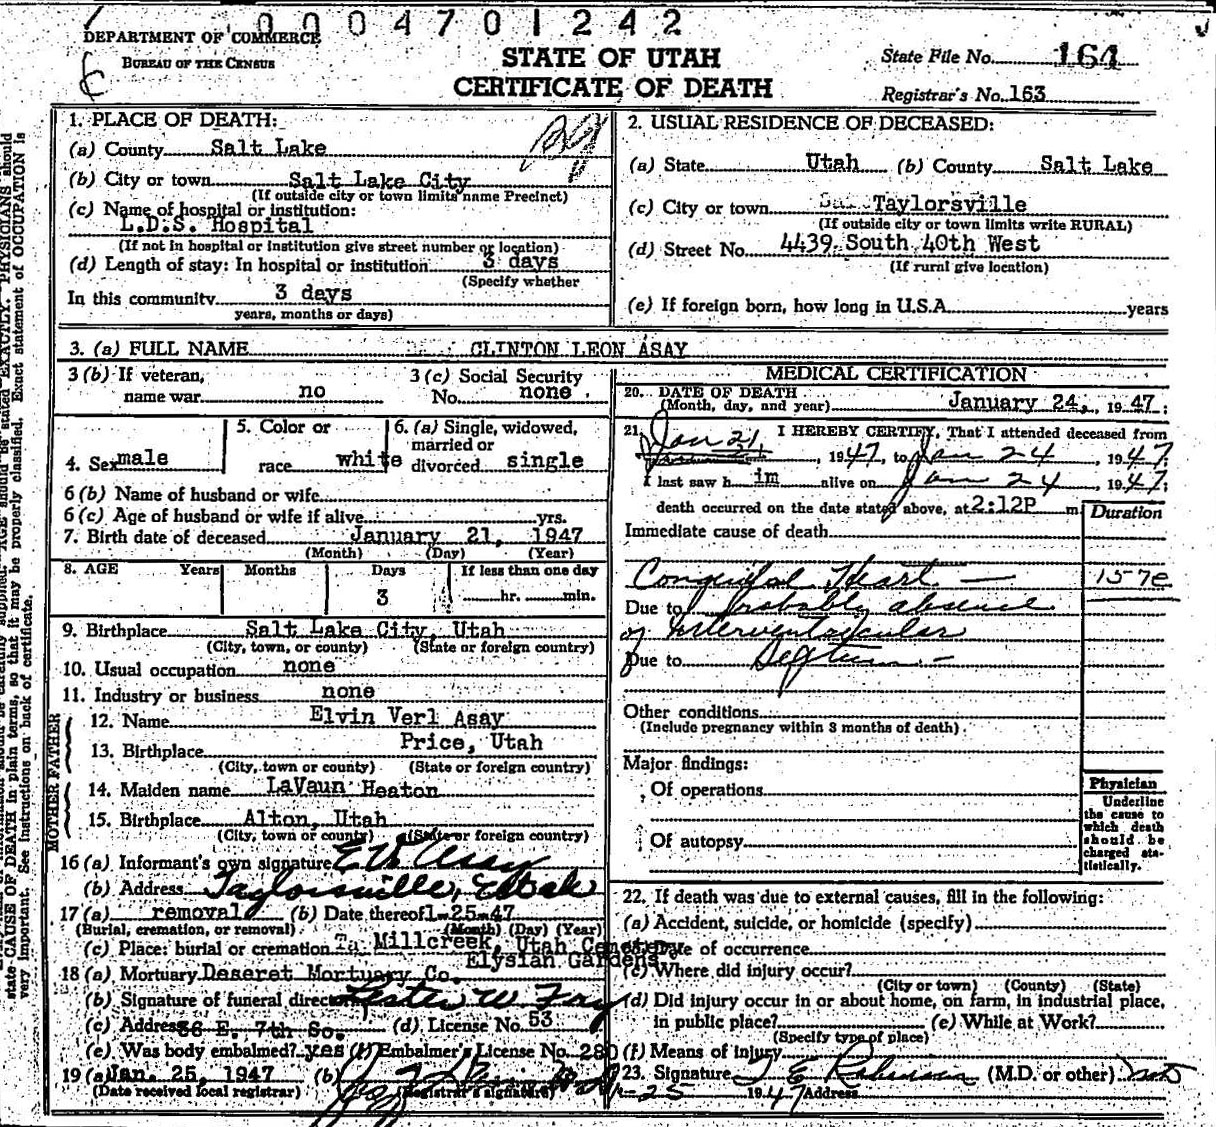 0004701242
DEPARTMENT OF COMMERCE
BUREAU OF THE CENSUS
STATE OF UTAH
CERTIFICATE OF DEATH
State File No. 164
Registrar's No. 163
1. PLACE OF DEATH:
(a) County Salt Lake
(b) City or town Salt Lake City
(If outside city or town limits name Precinct)
(c) Name of hospital or institution:
L.D.S. Hospital
(If not in hospital or institution give street number or location)
(d) Length of stay: In hospital or institution 3 days
(Specify whether
In this community 3 days
years, months or days)
2. USUAL RESIDENCE OF DECEASED:
(a) State Utah (b) County Salt Lake
(c) City or town Taylorsville
(If outside city or town limits write RURAL)
(d) Street No. 4439 South 40th West
(If rural give location)
(e) If foreign born, how long in U.S.A. years
3. (a) FULL NAME CLINTON LEON ASAY
3 (b) If veteran, name war no
3 (c) Social Security No. none
4. Sex male
5. Color or race white
6. (a) Single, widowed, married or divorced single
6 (b) Name of husband or wife
6 (c) Age of husband or wife if alive yrs.
7. Birth date of deceased January 21, 1947
(Month) (Day) (Year)
8. AGE Years Months Days If less than one day
3 hr. min.
9. Birthplace Salt Lake City, Utah
(City, town, or county) (State or foreign country)
10. Usual occupation none
11. Industry or business none
FATHER
12. Name Elvin Verl Asay
13. Birthplace Price, Utah
(City, town or county) (State or foreign country)
MOTHER
14. Maiden name LaVaun Heaton
15. Birthplace Alton, Utah
(City, town or county) (State or foreign country)
16 (a) Informant's own signature E V Asay
(b) Address Taylorsville, Utah
17 (a) removal (b) Date thereof 1-25-47
(Burial, cremation, or removal) (Month) (Day) (Year)
(c) Place: burial or cremation Millcreek, Utah Cemetery
Elysian Gardens
18 (a) Mortuary Deseret Mortuary Co.
(b) Signature of funeral director Lester W Fry
(c) Address 36 E. 7th So. (d) License No. 53
(e) Was body embalmed? yes (f) Embalmer's License No. 280
19 (a) Jan. 25, 1947 (b)
(Date received local registrar) (Registrar's signature)
MEDICAL CERTIFICATION
20. DATE OF DEATH
(Month, day, and year) January 24, 1947;
21. I HEREBY CERTIFY, That I attended deceased from
Jan 21, 1947, to Jan 24, 1947
I last saw him alive on Jan 24, 1947;
death occurred on the date stated above, at 2:12P m.
Duration
Immediate cause of death
Congenital Heart — 157e
Due to probably absence
of Interventricular
Due to Septum. —
Other conditions
(Include pregnancy within 3 months of death)
Major findings:
Of operations
Of autopsy
Physician
Underline the cause to which death should be charged statistically.
22. If death was due to external causes, fill in the following:
(a) Accident, suicide, or homicide (specify)
Date of occurrence
(c) Where did injury occur?
(City or town) (County) (State)
(d) Did injury occur in or about home, on farm, in industrial place,
in public place? (e) While at Work?
(Specify type of place)
(f) Means of injury
23. Signature (M.D. or other)
1-25 1947 Address
state CAUSE OF DEATH in plain terms, so that it may be properly classified. Exact statement of OCCUPATION is
very important. See instructions on back of certificate.